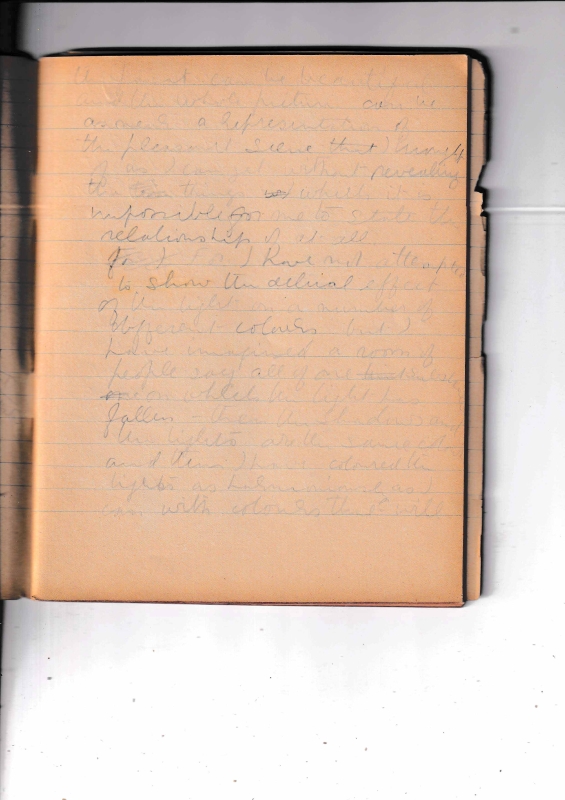 it can be beautiful
and the whole picture can be
a representation of
the pleasant scene that I
of as I can get without revealing
the things which it is
impossible for me to state the
relationship of at all
for I have not attempted
to show the actual effect
of the light on a number of
different colours but I
have imagined a room of
people say all of one
on which the light has
fallen then the shadows and
the lights are the same
and then I have coloured the
lights as harmoniously as I
can with colours that will